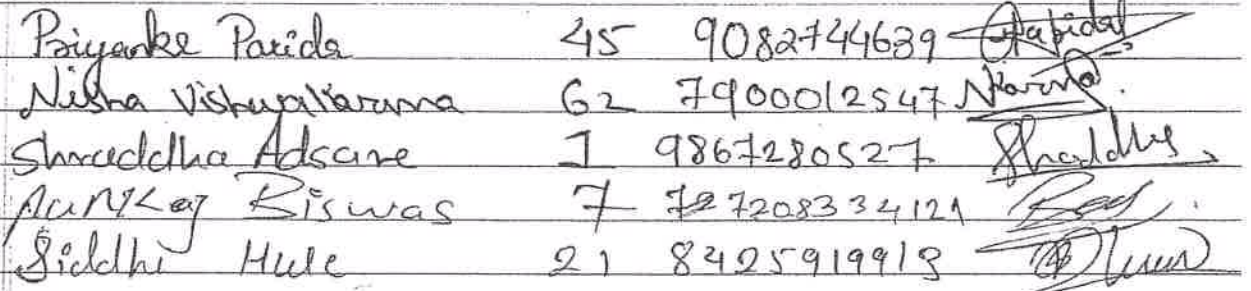 Priyanke Parida 45 9082744639
Nisha Vishwakarma 62 7900012547
Shraddha Adsare 1 9867280527 Shraddha
Biswas 7
Siddhi Hule 21 8425919913